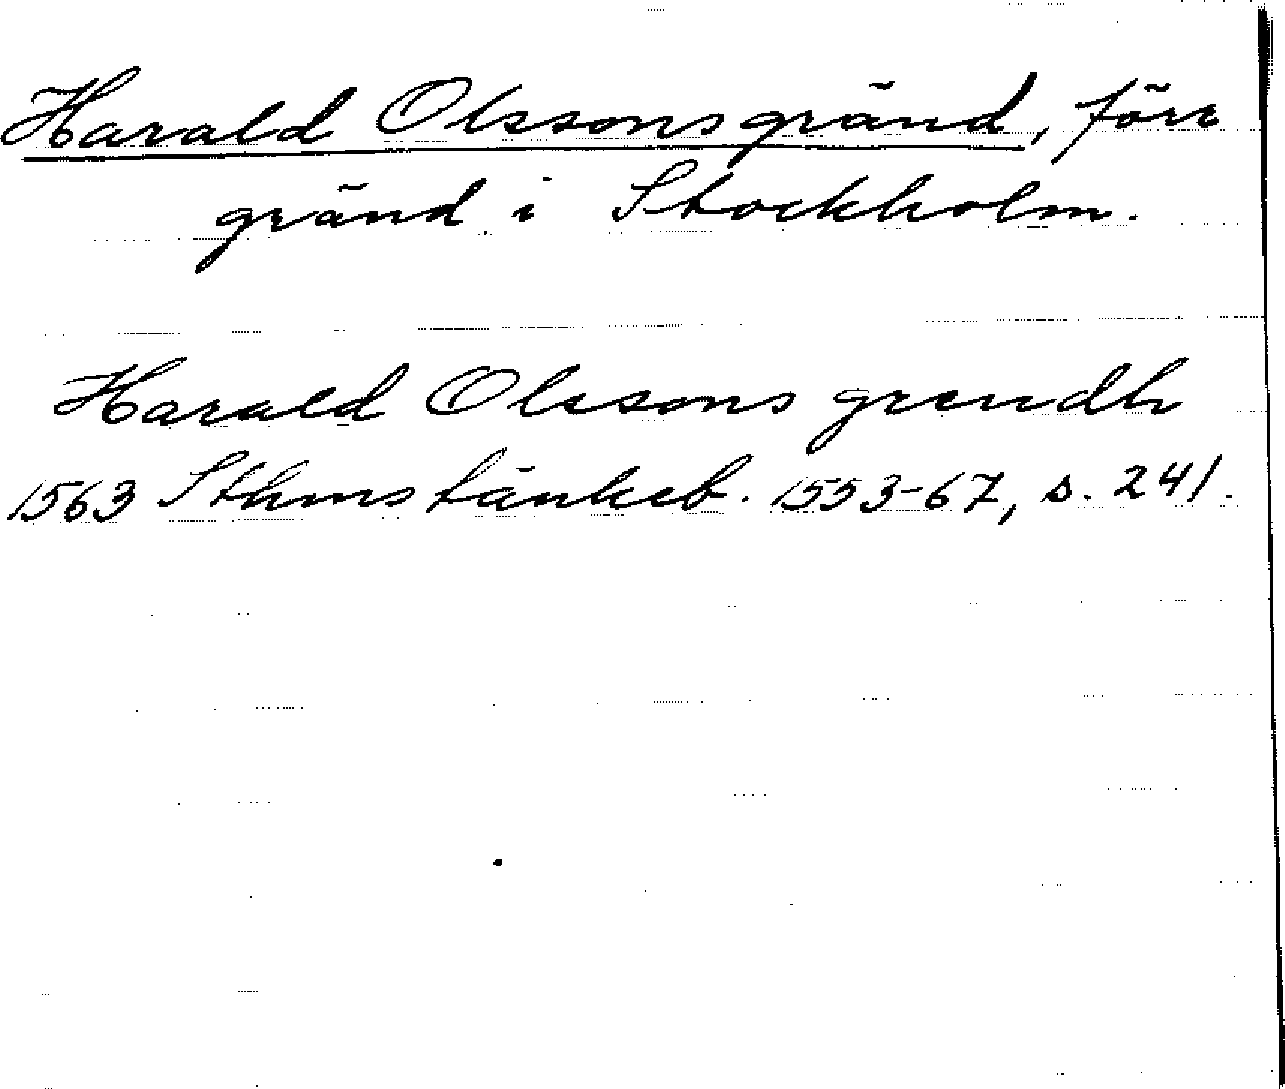 Harald Olssonsgränd, förr
gränd i Stockholm.
Harald Olssons grendh
1563 Sthms tänkeb. 1553-67, s. 241.